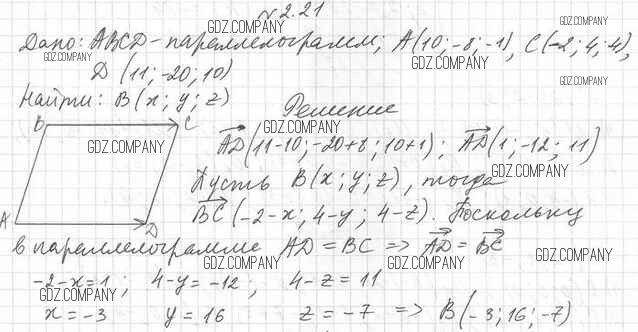 №2.21
Дано: ABCD - параллелограмм; A(10; -8; -1), C(-2; 4; 4),
D(11; -20; 10)
Найти: B(x; y; z)
Решение
B C
A D
AD(11-10; -20+8; 10+1); AD(1; -12; 11)
Пусть B(x; y; z), тогда
BC(-2-x; 4-y; 4-z). Поскольку
в параллелограмме AD = BC => AD = BC
-2-x=1; 4-y=-12; 4-z=11
x=-3 y=16 z=-7 => B(-3; 16; -7)
GDZ.COMPANY
GDZ.COMPANY
GDZ.COMPANY
GDZ.COMPANY
GDZ.COMPANY
GDZ.COMPANY
GDZ.COMPANY
GDZ.COMPANY
GDZ.COMPANY
GDZ.COMPANY
GDZ.COMPANY
GDZ.COMPANY
GDZ.COMPANY